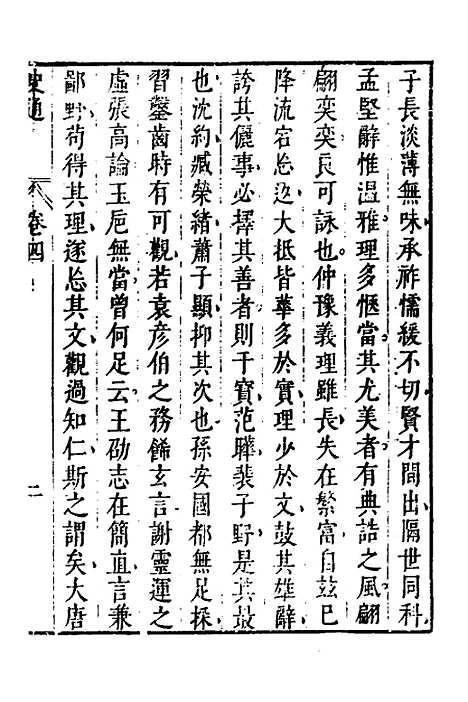 子長淡薄無味承祚懦緩不切賢才間出隔世同科
孟堅辭惟溫雅理多愜當其尤美者有典誥之風翩
翩奕奕良可詠也仲豫義理雖長失在繁富自茲已
降流宕忘返大抵皆華多於實理少於文鼓其雄辭
誇其儷事必擇其善者則干寶范曄裴子野是其最
也沈約臧榮緒蕭子顯抑其次也孫安國都無足採
習鑿齒時有可觀若袁彦伯之務餙玄言謝靈運之
虛張高論玉巵無當曾何足云王劭志在簡直言兼
鄙野苟得其理遂忘其文觀過知仁斯之謂矣大唐
史通
卷四
二